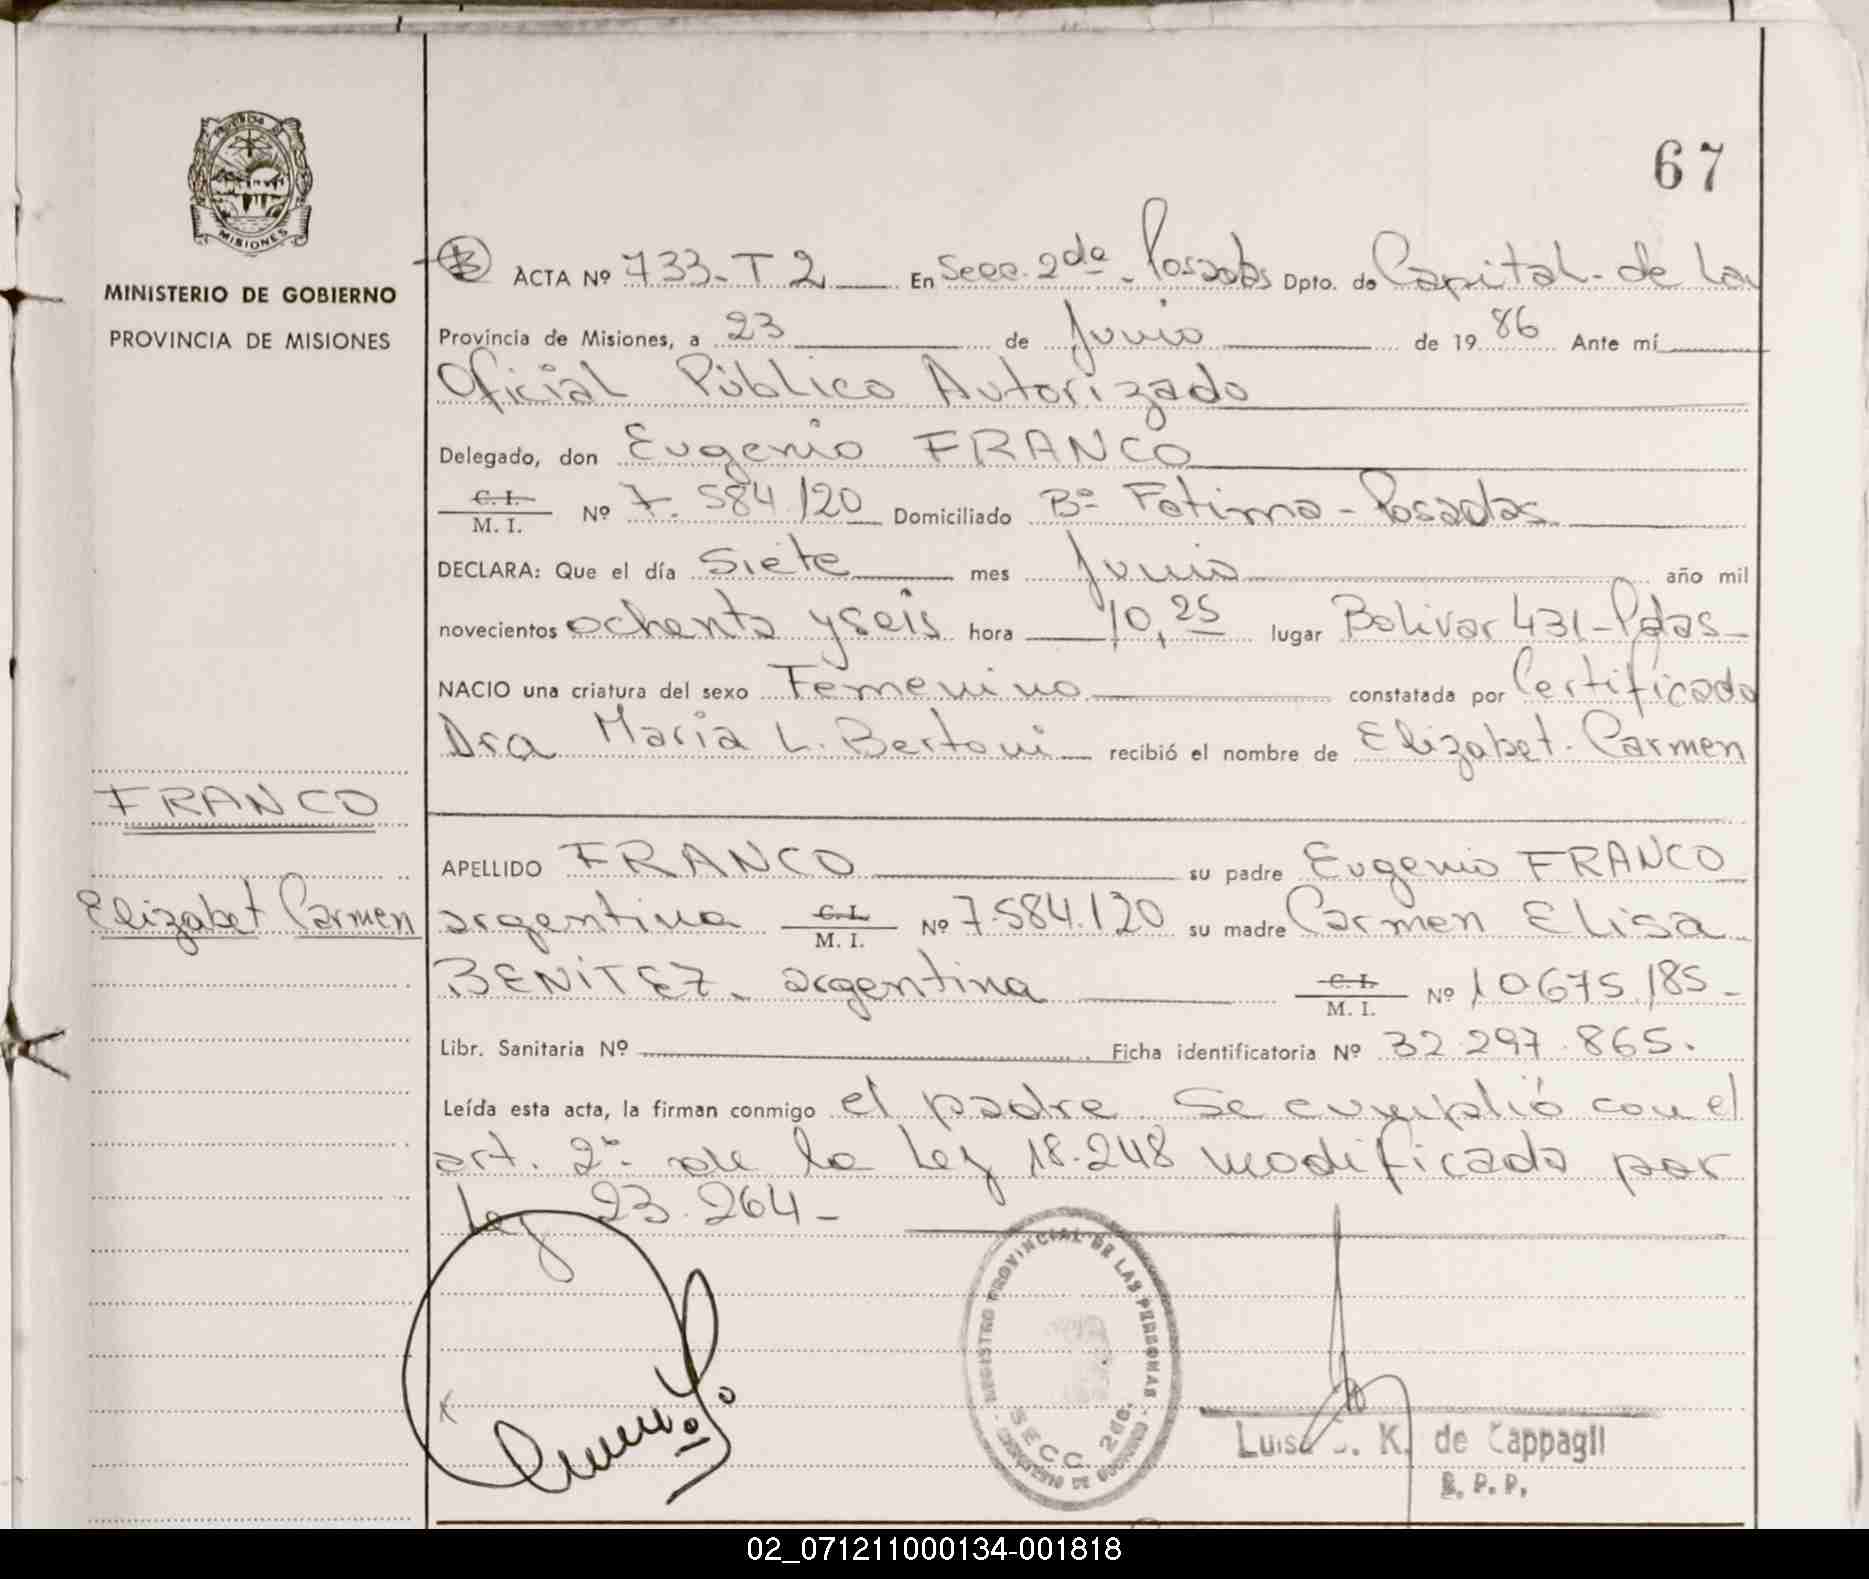 67
MISIONES
MINISTERIO DE GOBIERNO
PROVINCIA DE MISIONES
ACTA Nº 733-T 2 En Secc. 2da - Posadas Dpto. de Capital - de la
Provincia de Misiones, a 23 de Junio de 19 86 Ante mí
Oficial Público Autorizado
Delegado, don Eugenio FRANCO
C. I. / M. I. Nº 7.584.120 Domiciliado Bº Fatima - Posadas
DECLARA: Que el día Siete mes Junio año mil
novecientos ochenta y seis hora 10,25 lugar Bolivar 431 - Pdas -
NACIO una criatura del sexo Femenino constatada por Certificado
Dra Maria L. Bertoni recibió el nombre de Elizabet. Carmen
FRANCO
Elizabet Carmen
APELLIDO FRANCO su padre Eugenio FRANCO
argentina C. I. / M. I. Nº 7.584.120 su madre Carmen Elisa
BENITEZ. argentina C. I. / M. I. Nº 10.675.185 -
Libr. Sanitaria Nº Ficha identificatoria Nº 32.297.865.
Leída esta acta, la firman conmigo el padre Se cumplió con el
art. 2º de la Ley 18.248 modificada por
Ley 23.264 -
REGISTRO PROVINCIAL DE LAS PERSONAS
SECC 2da.
MINISTERIO DE GOBIERNO
Luisa K. de Cappagli
O. P. P.
02_071211000134-001818